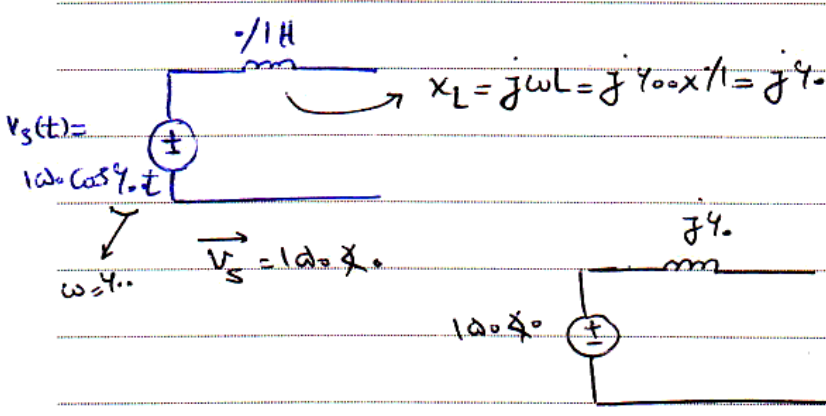 ۰/۱ H
X_L = jωL = j۶۰۰×۰/۱ = j۶۰
V_s(t)=
۱۵۰ Cos ۶۰t
ω=۶۰۰
V⃗_s = ۱۵۰∡۰
j۶۰
۱۵۰∡۰